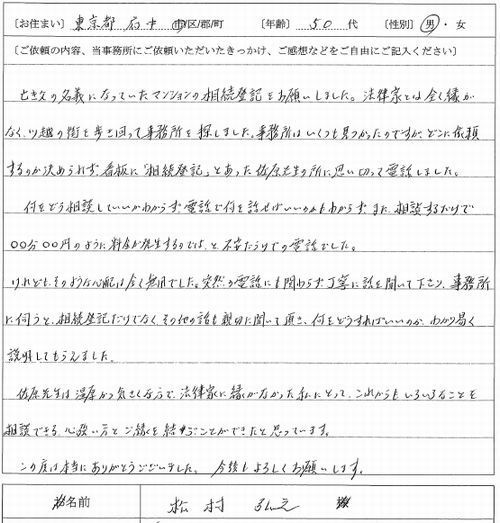 ［お住まい］ 東京都 府中 市/区/郡/町 ［年齢］ 50 代 ［性別］ 男・女
［ご依頼の内容、当事務所にご依頼いただいたきっかけ、ご感想などをご自由にご記入ください］
亡き父の名義になっていたマンションの相続登記をお願いしました。法律家とは全く縁が
なく、川越の街を歩き回って事務所を探しました。事務所はいくつも見つかったのですが、どこに依頼
するのか決められず、看板に「相続登記」とあった佐原先生の所に思い切って電話しました。
何をどう相談していいかわからず、電話で何を話せばいいのかもわからず、また、相談するだけで
○○分○○円のように料金が発生するのでは、と不安だらけでの電話でした。
けれども、そのような心配は全く無用でした。突然の電話にも関わらず丁寧に話を聞いて下さり、事務所
に伺うと、相続登記だけでなく、その他の話も親切に聞いて頂き、何をどうすればいいのか、わかり易く
説明してもらえました。
佐原先生は温厚かつ気さくな方で、法律家に縁がなかった私にとって、これからもいろいろなことを
相談できる、心強い方とご縁を結ぶことができたと思っています。
この度は本当にありがとうございました。今後もよろしくお願いします。
お名前 松村